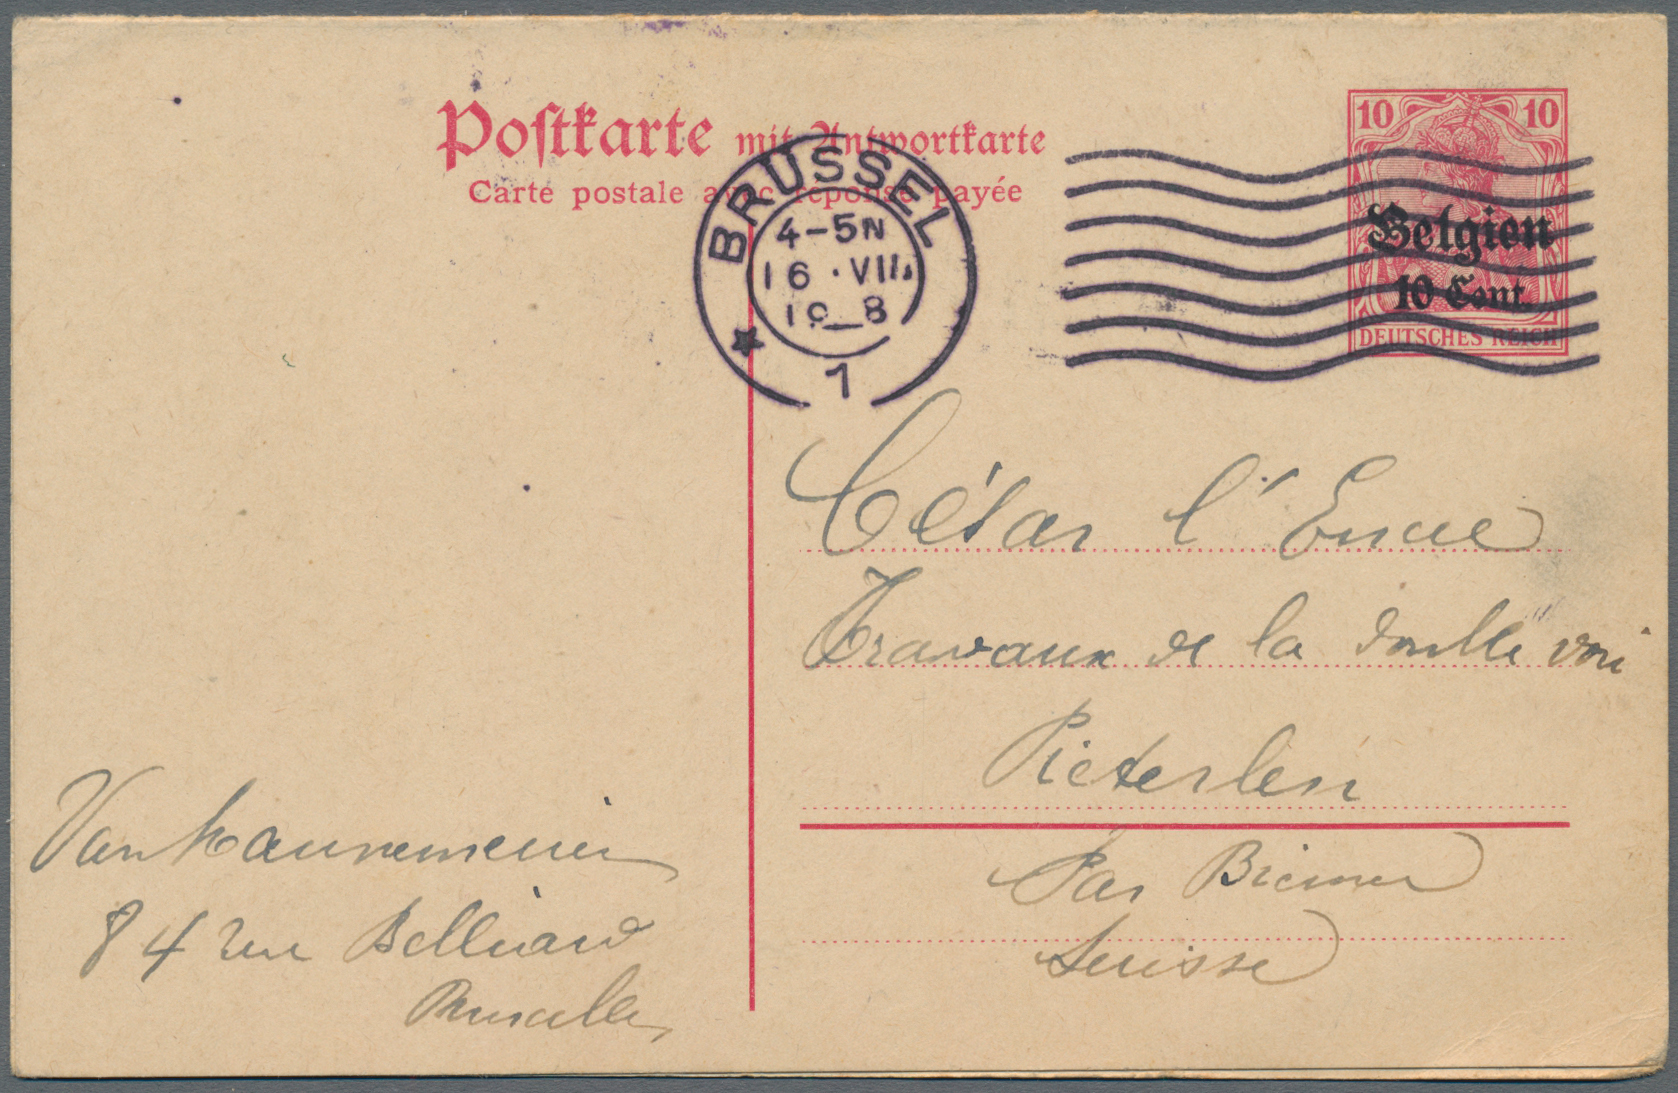 Postkarte mit Antwortkarte
Carte postale avec réponse payée
10 10
Belgien
10 Cent.
DEUTSCHES REICH
BRÜSSEL
4-5N
16.VIII
19_8
1
César l'
Travaux de la double voi
Pieterlen
Par Bienne
Suisse
84 rue Belliard
Bruxelles